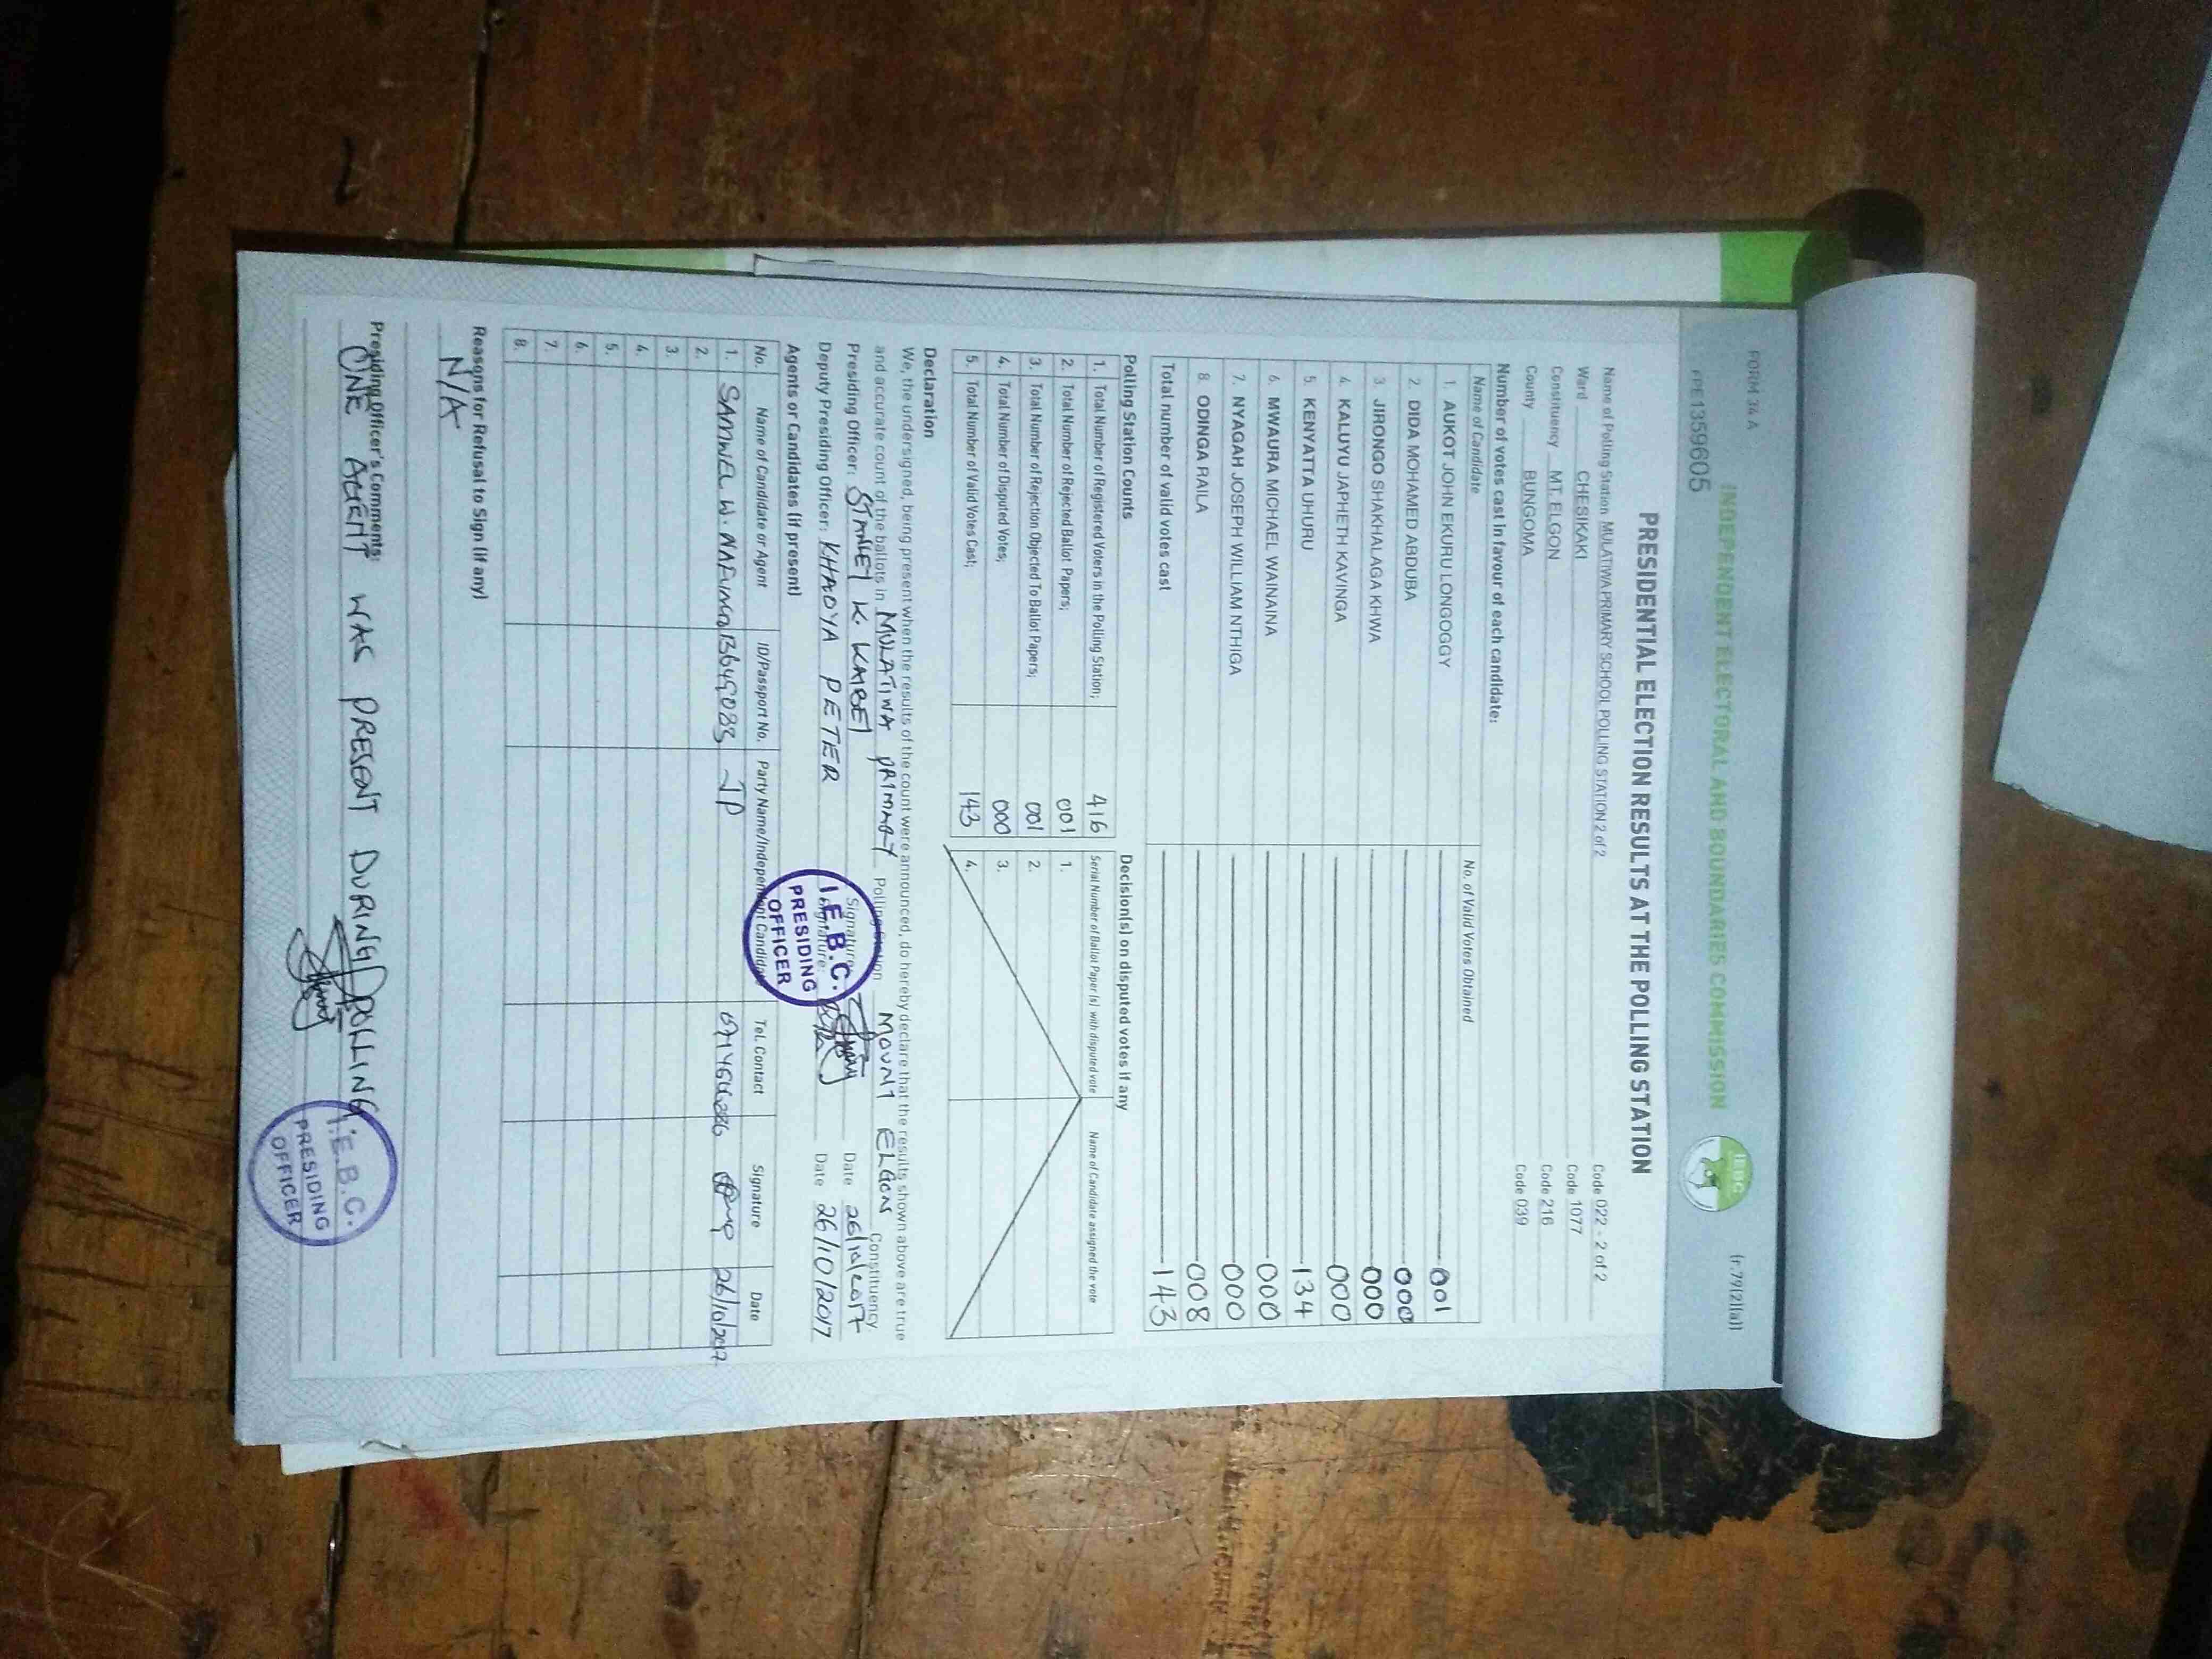 FORM 34 A
(r.79(2)(a))
INDEPENDENT ELECTORAL AND BOUNDARIES COMMISSION
IEBC
PRE1359605
PRESIDENTIAL ELECTION RESULTS AT THE POLLING STATION
Name of Polling Station MULATIWA PRIMARY SCHOOL POLLING STATION 2 of 2 Code 022 - 2 of 2
Ward CHESIKAKI Code 1077
Constituency MT. ELGON Code 216
County BUNGOMA Code 039
Number of votes cast in favour of each candidate:
Name of Candidate No. of Valid Votes Obtained
1. AUKOT JOHN EKURU LONGOGGY 001
2. DIDA MOHAMED ABDUBA 000
3. JIRONGO SHAKHALAGA KHWA 000
4. KALUYU JAPHETH KAVINGA 000
5. KENYATTA UHURU 134
6. MWAURA MICHAEL WAINAINA 000
7. NYAGAH JOSEPH WILLIAM NTHIGA 000
8. ODINGA RAILA 008
Total number of valid votes cast 143
Polling Station Counts Decision(s) on disputed votes if any
1. Total Number of Registered Voters in the Polling Station; 416 Serial Number of Ballot Paper (s) with disputed vote Name of Candidate assigned the vote
2. Total Number of Rejected Ballot Papers; 001 1.
3. Total Number of Rejection Objected To Ballot Papers; 001 2.
4. Total Number of Disputed Votes; 000 3.
5. Total Number of Valid Votes Cast; 143 4.
Declaration
We, the undersigned, being present when the results of the count were announced, do hereby declare that the results shown above are true
and accurate count of the ballots in MULATIWA PRIMARY Polling Station MOUNT ELGON Constituency.
Presiding Officer: STANLEY K. KAIBEI Signature: Date 26/10/2017
Deputy Presiding Officer: KHAOYA PETER Signature: Date 26/10/2017
I.E.B.C.
PRESIDING
OFFICER
Agents or Candidates (if present)
No. Name of Candidate or Agent ID/Passport No. Party Name/Independent Candidate Tel. Contact Signature Date
1. SAMWEL W. JP 26/10/2017
2.
3.
4.
5.
6.
7.
8.
Reasons for Refusal to Sign (if any)
N/A
Presiding Officer's Comments:
ONE AGENT WAS PRESENT DURING POLLING
I.E.B.C.
PRESIDING
OFFICER